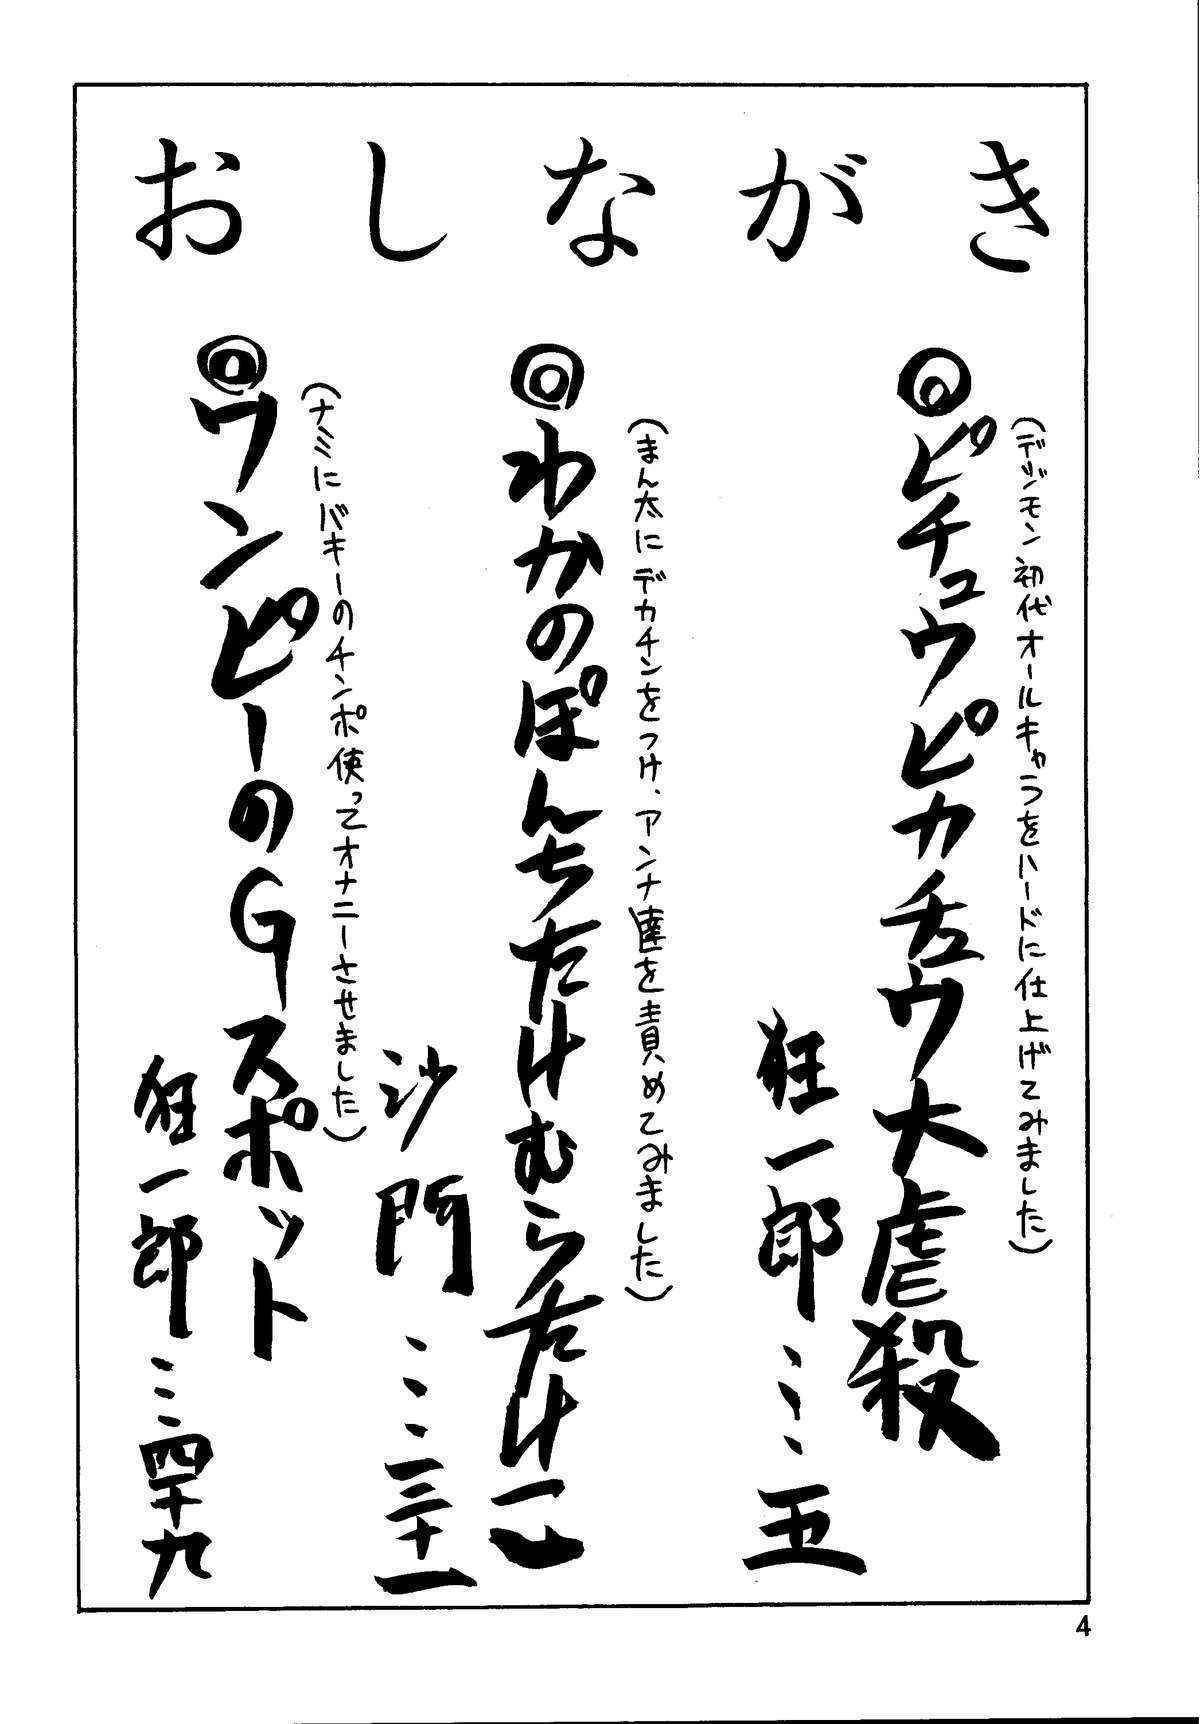 おしながき
(デジモン初代オールキャラをハードに仕上げてみました)
◎ピチュウピカチュウ大虐殺
狂一郎…五
(まん太にデカチンをつけ、アンナ達を責めてみました)
◎わかのぽんちたけむらたけ一
沙門…三十一
(ナミにバギーのチンポ使ってオナニーさせました)
◎ワンピーのGスポット
狂一郎…四十九
4